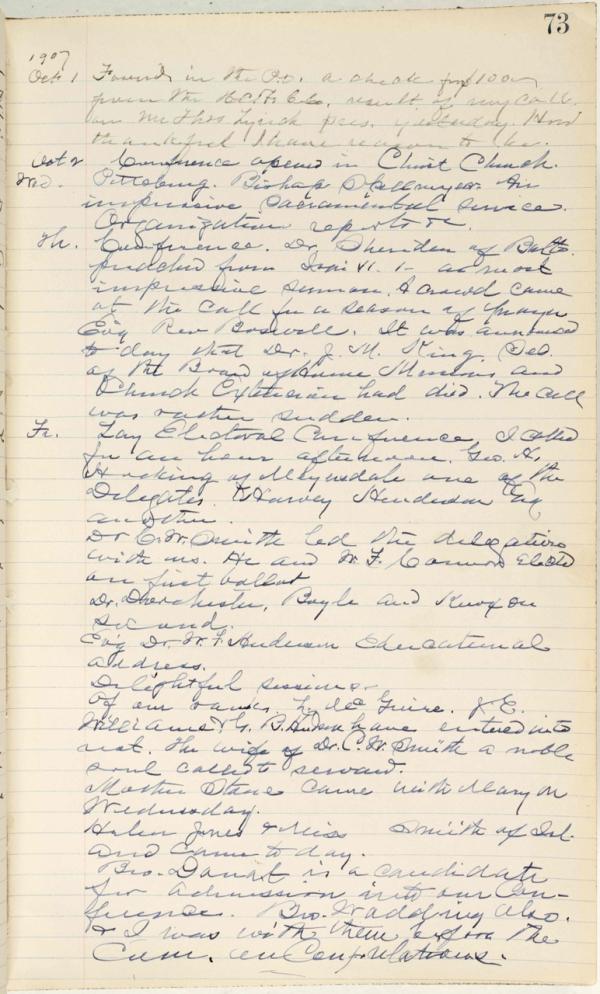 73
1907
Oct 1 Found in the P.O. a check for $100
from the H.C.F. Co. result of my call
on Mr Thos Lynch pres. yesterday. How
thankful I have reason to be.
Oct 2 Conference opened in Christ Church.
Wed. Pittsburg. Bishop Spellmeyer. An
impressive sacramental service.
Organization reports &c.
Th. Conference. Dr. Sheridan of Balto.
preached from Isai VI. 1- a most
impressive sermon. A crowd came
at the call for a season of prayer
Ev'g Rev Boswell. It was announced
to day that Dr. J. M. King, Sec.
of the Board of Home Missions and
Church Extension had died. The call
was rather sudden.
Fr. Lay Electoral Conference, I called
for an hour afternoon. Geo. H.
Hocking of Meyersdale one of the
Delegates. Harvey Henderson Esq
another.
Dr C. W. Smith led the delegation
with us. He and W. F. Conner Elected
on first ballot
Dr. Dorchester, Boyle and Knox on
second.
Ev'g Dr. W. F. Anderson Educational
address.
Delightful session
Of our ranks, Guire. J. E.
Williams & G. B. Hudson have entered into
rest. The wife of Dr. C. W. Smith a noble
soul called to reward.
Mother Stone came with Mary on
Wednesday.
Helen Jones & Miss Smith of
and came to day.
Bro. Danat is a candidate
for admission into our Con-
ference. Bro. Wadding also.
& I was with them before the
Com. on Conf. Relations.